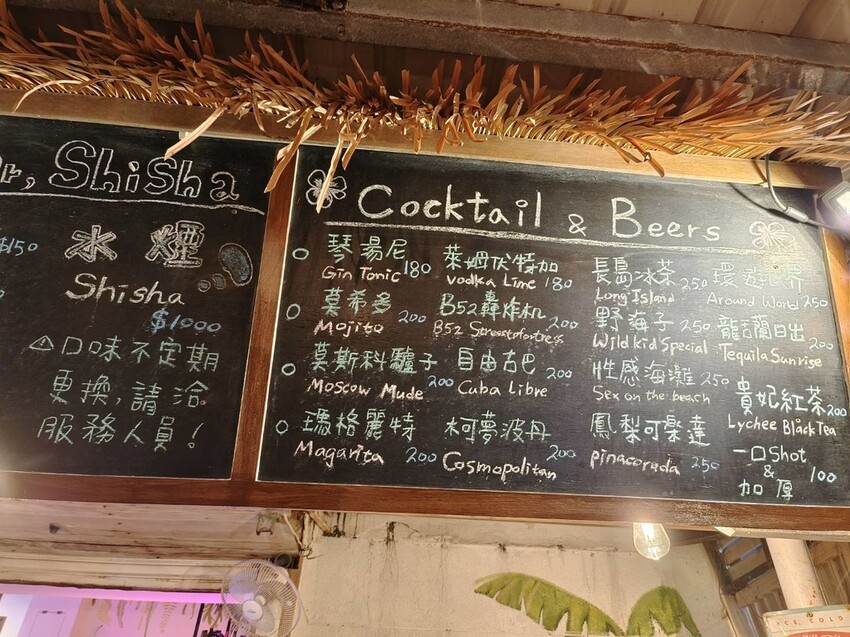 Shisha
$150
水煙
Shisha
$1000
⚠口味不定期
更換,請洽
服務人員!
Cocktail & Beers
琴湯尼
Gin Tonic 180
莫希多
Mojito 200
莫斯科驢子
Moscow Mude 200
瑪格麗特
Magarita 200
萊姆伏特加
Vodka Lime 180
B52轟炸机
B52 Stresstofortress 200
自由古巴
Cuba Libre 200
柯夢波丹
Cosmopolitan 200
長島冰茶 250
Long Island
野孩子 250
Wild kid Special
性感海灘 250
Sex on the beach
鳳梨可樂達
pinacorada 250
環遊世界
Around World 250
龍舌蘭日出 200
Tequila Sunrise
貴妃紅茶 200
Lychee Black Tea
一口Shot
&
加厚 100